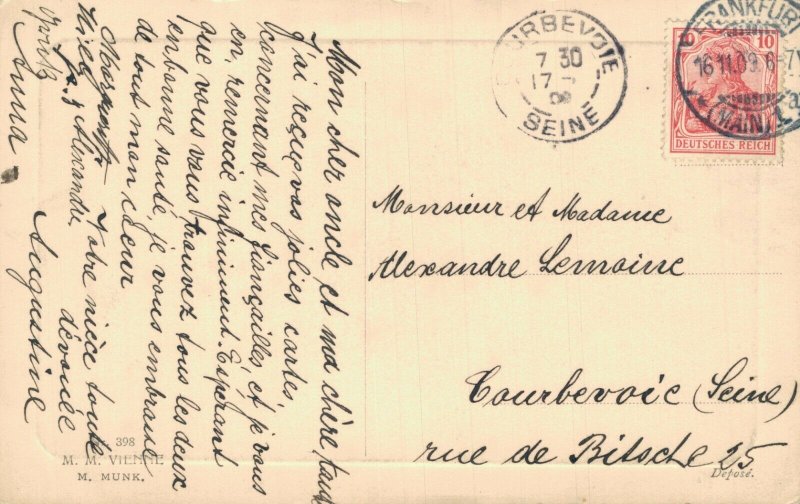 Mon cher oncle et ma chère tante
J'ai reçu vos jolies cartes
concernant mes fiançailles et je vous
en remercie infiniment. Espérant
que vous vous trouvez tous les deux
en bonne santé, je vous embrasse
de tout mon cœur
Votre nièce toute
dévouée
Augustine
Alexandre
Anna
COURBEVOIE
7 30
17 -
09
SEINE
FRANKFURT
16.11.09. 6-7
(MAIN)
10 10
DEUTSCHES REICH
Monsieur et Madame
Alexandre Lemoine
Courbevoie (Seine)
rue de Bitsche 25
398
M. M. VIENNE
M. MUNK.
Déposé.